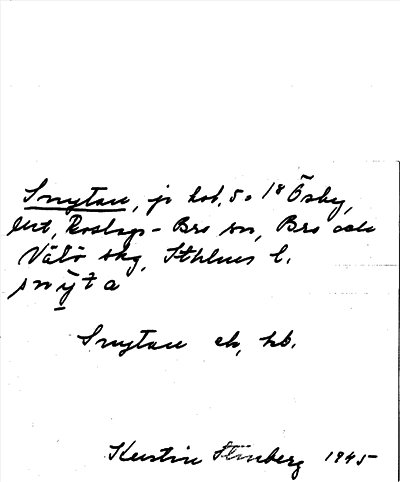 Snytan, jo hos. 5 o 18 Ösby,
Unt, Roslags-Bro sn, Bro och
Väts skg, Sthlms l.
snÿta
Snytan ek, kb.
Kerstin Stenberg 1945